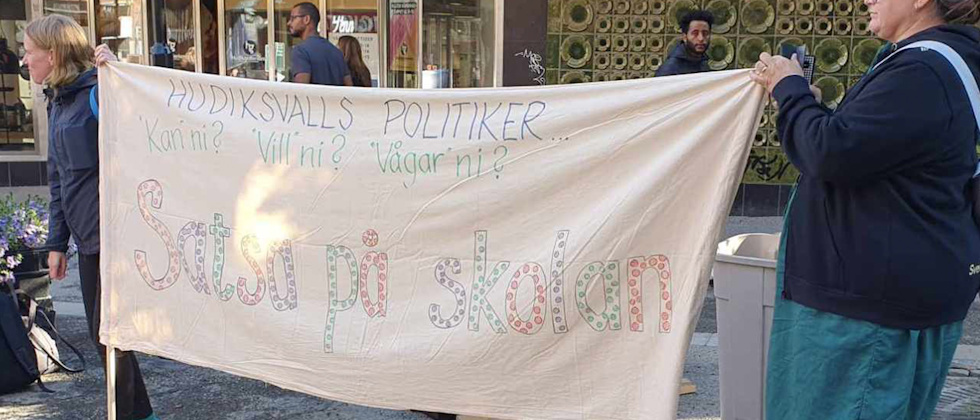 HUDIKSVALLS POLITIKER...
"Kan" ni? "Vill" ni? "Vågar" ni?
Satsa på skolan